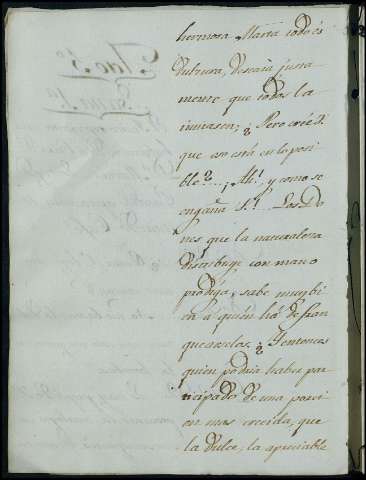 hermosa Marta todo es
dulzura, deseaía justa
mente que todos la
imitasen; ¿Pero crée S.
que eso está en lo posi
ble?... ¡Ah!, y como se
engaña S.! Los Do
nes que la naturaleza
distribuye con mano
prodiga, sabe muy bi
en á quién há de fran
quearlos. ¿Y entonces
quien podria haber par
ticipado de una porci
on mas crecida, que
la dulce, la apreciable